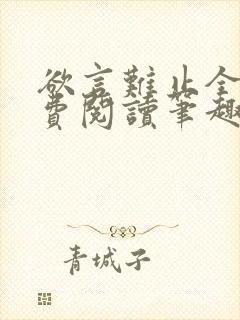 欲言難止全
費閱讀筆趣
青城子